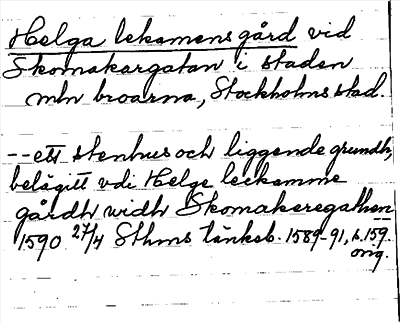 Helga lekamens gård vid
Skomakargatan i staden
mln broarna, Stockholms stad.
-- ett stenhus och liggende grundh,
belägitt vdi Helge leckamme
gårdh widh Skomakeregathen
1590 27/4 Sthms tänkeb. 1589-91, s. 159.
orig.